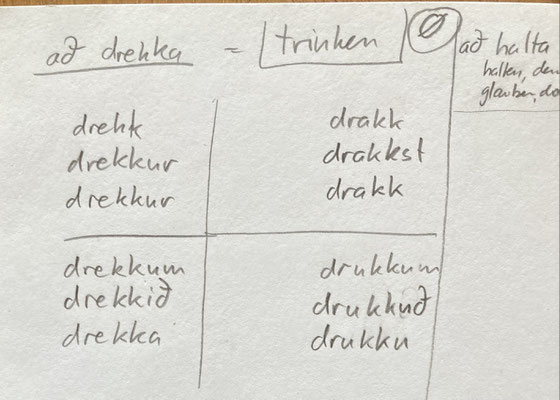 að drekka = trinken Ø
drekk drakk
drekkur drakkst
drekkur drakk
drekkum drukkum
drekkið drukkuð
drekka drukku
að halta
halten, den
glauben, do